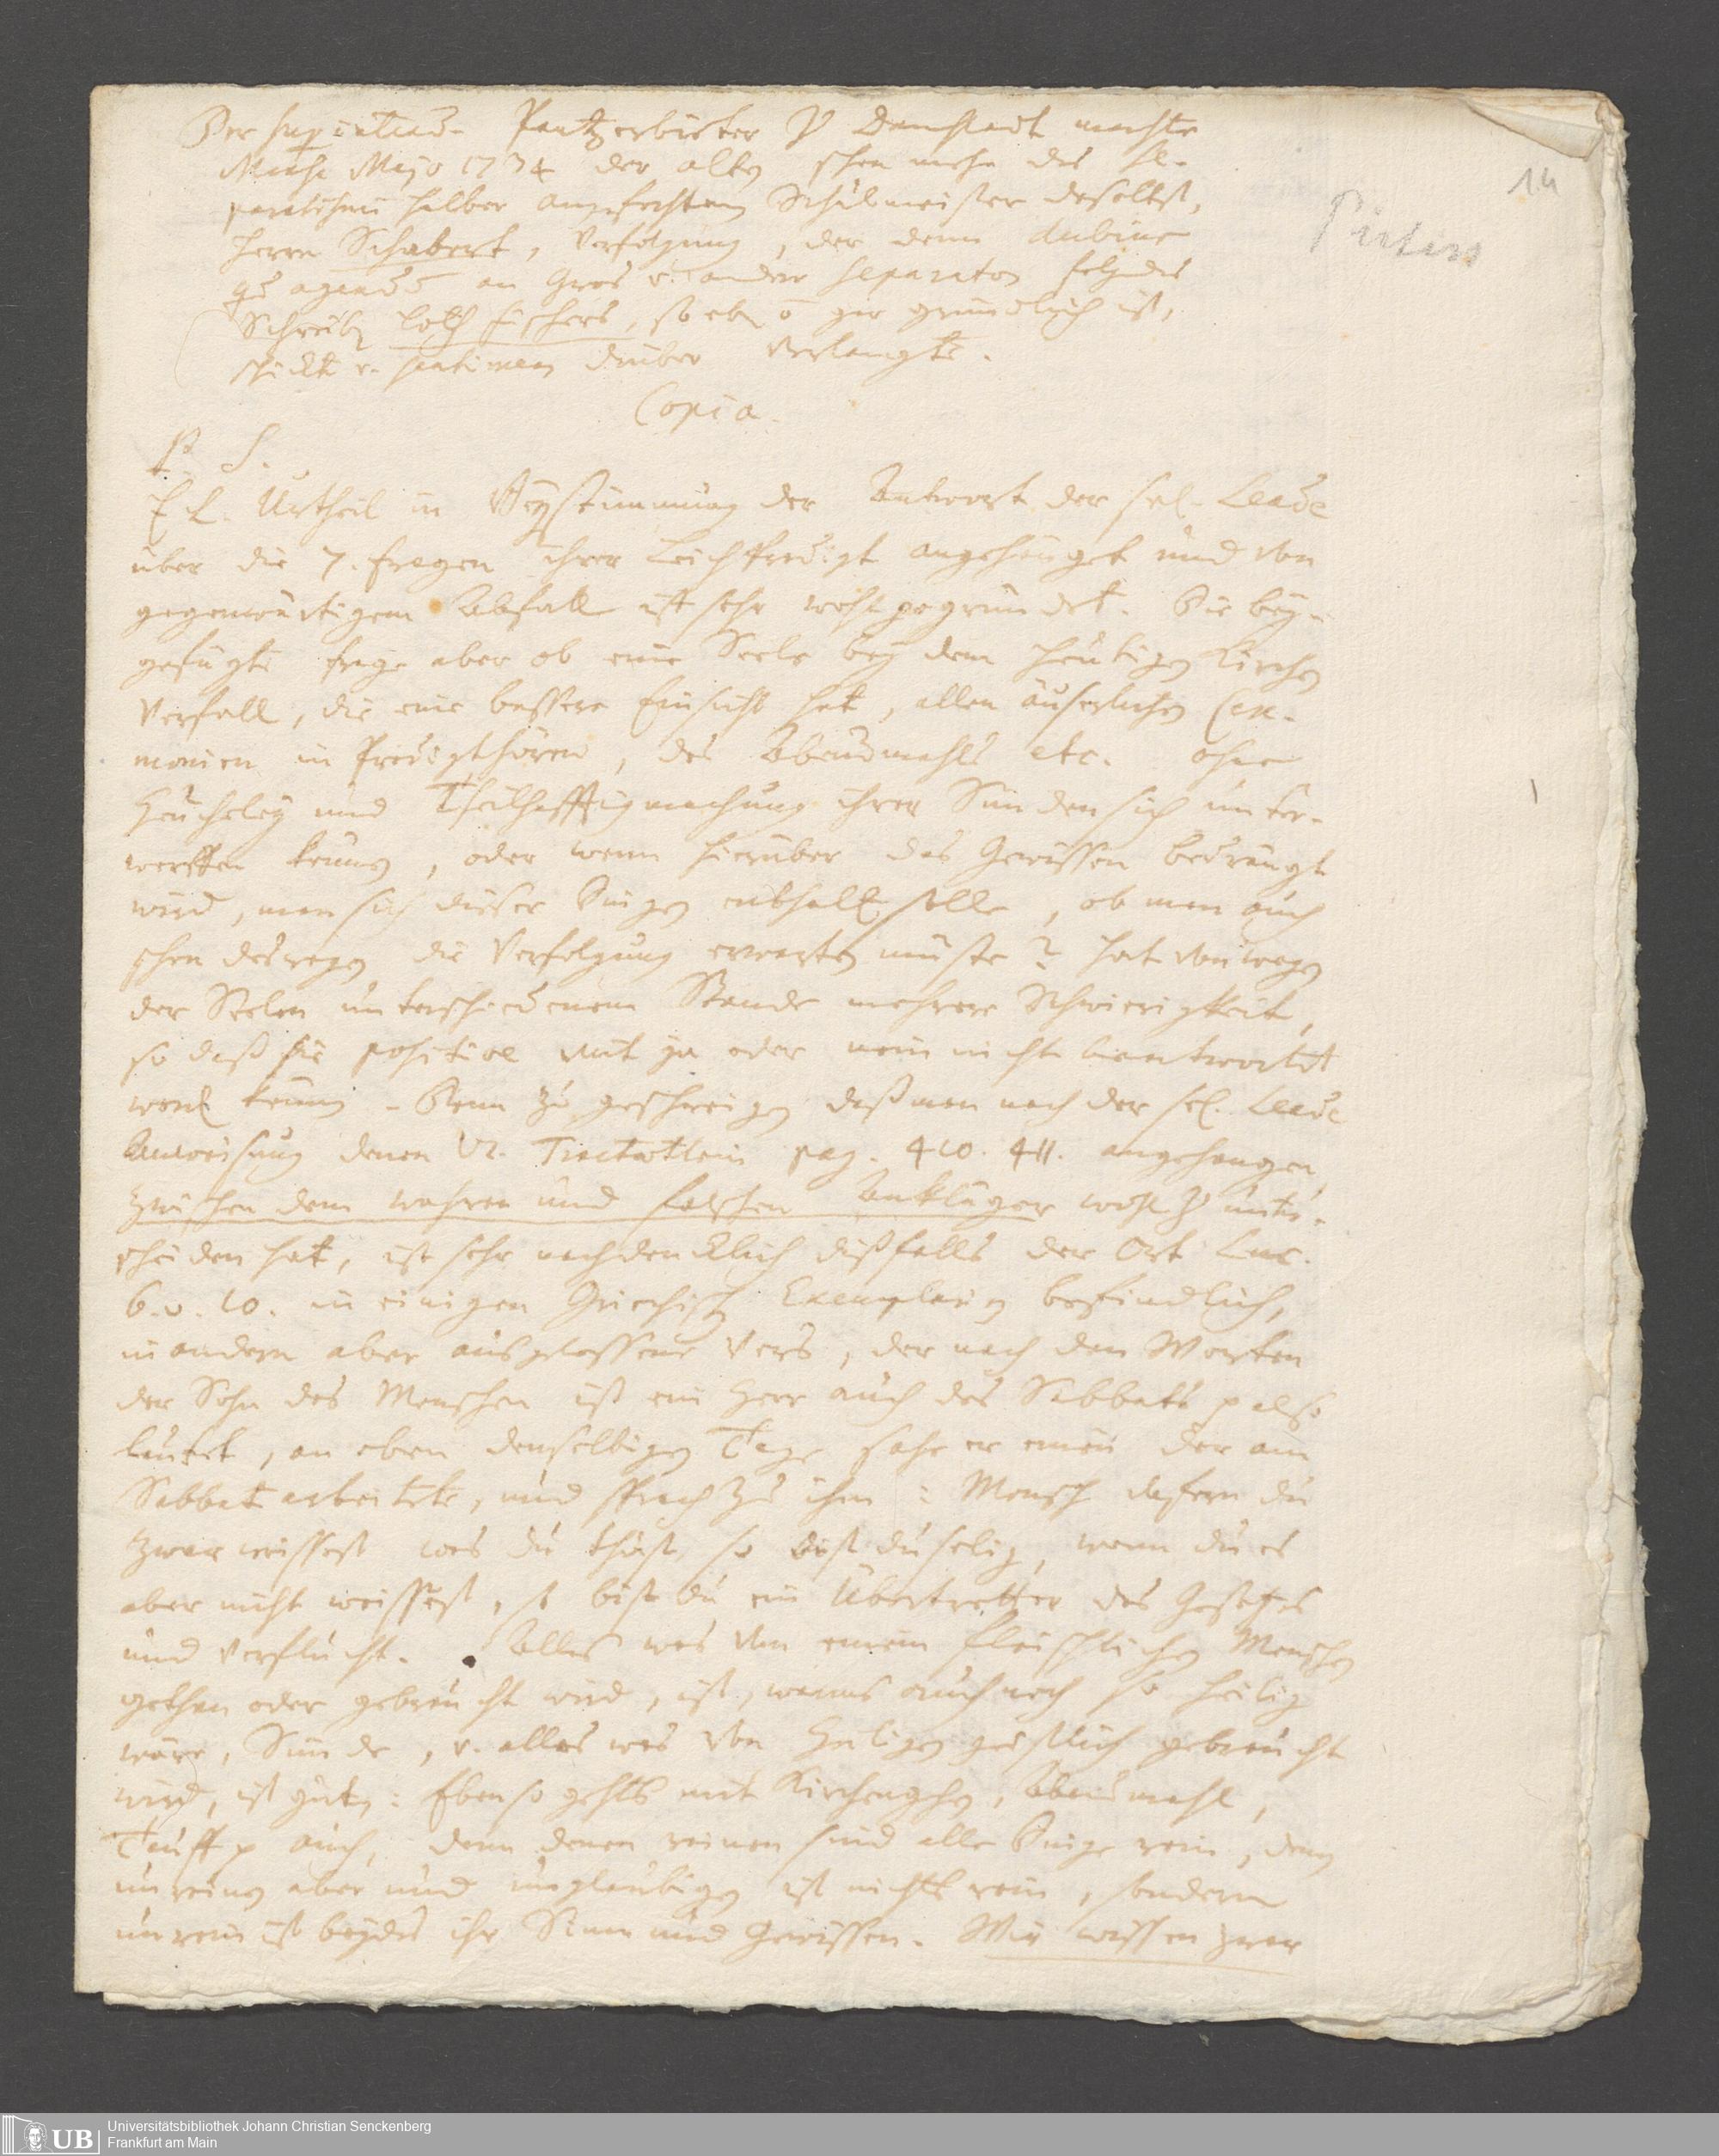 Der Superintend. Pantzerbieter zu Darmstadt machte
Mense Majo 1734 der alten schon mehr des Se-
paratismi halber angefochtenen Schulmeister daselbst,
Herrn Schabert, Verfolgung, der denn dubius
quid agendum an Gros u. andere Separaten folgendes
Schreiben Loth Fischers, so eben gar gründlich ist,
schickte u. sentiment drüber verlangte.
Copia.
P. S.
E. L. Urtheil in Beystimmung der Antwort der sel. Leade
über die 7. Fragen ihrer Leichpredigt angehänget und von
gegenwärtigem Abfall ist sehr wohl gegründet. Die bey-
gefügte Frage aber ob eine Seele bey dem heutigen Kirchen
Verfall, die eine bessere Einsicht hat, allen äuserlichen Cere-
monien in Predigthören, des Abendmahls etc. ohne
Heucheley und Theilhafftigmachung ihrer Sünden sich unter-
werffen könne, oder wenn hierüber das Gewissen bedrängt
wird, man sich dieser Dingen enthalten solle, ob man auch
schon deswegen die Verfolgung erwarten müste? hat von wegen
der Seelen unterschiedenem Stande mehrere Schwierigkeit,
so daß sie positive mit ja oder nein nicht beantwortet
werden kann. Denn zu geschweigen daß man nach der sel. Leade
Anweisung denen VI. Tractätlein pag. 410. 411. angehangen
zwischen dem wahren und falschen Ankläger wohl zu unter-
scheiden hat, ist sehr nachdencklich dißfalls der Ort Luc.
6. v. 10. in einigen Griechischen Exemplarien befindlich,
in andern aber ausgelassene Vers, der nach den Worten
der Sohn des Menschen ist ein Herr auch des Sabbaths p also
lautet, an eben denselbigen Tage sahe er einen der am
Sabbat arbeitete, und sprach zu ihm: Mensch dafern du
zwar weissest was du thust, so bist du selig, wenn du es
aber nicht weissest, so bist du ein Übertretter des Gesetzes
und verflucht. Alles was von einem fleischlichen Menschen
gethan oder gebraucht wird, ist, wenns auch noch so heilig
wäre, Sünde, u. alles was von Heiligen geistlich gebraucht
wird, ist gut: Ebenso gehts mit Kirchengehen, Abendmahl,
Tauff p auch, denn denen reinen sind alle Dinge rein, denen
unreinen aber und unglaubigen ist nichts rein, sondern
unrein ist beydes ihr Sinn und Gewissen. Wir wissen zwar
14
UB
Universitätsbibliothek Johann Christian Senckenberg
Frankfurt am Main